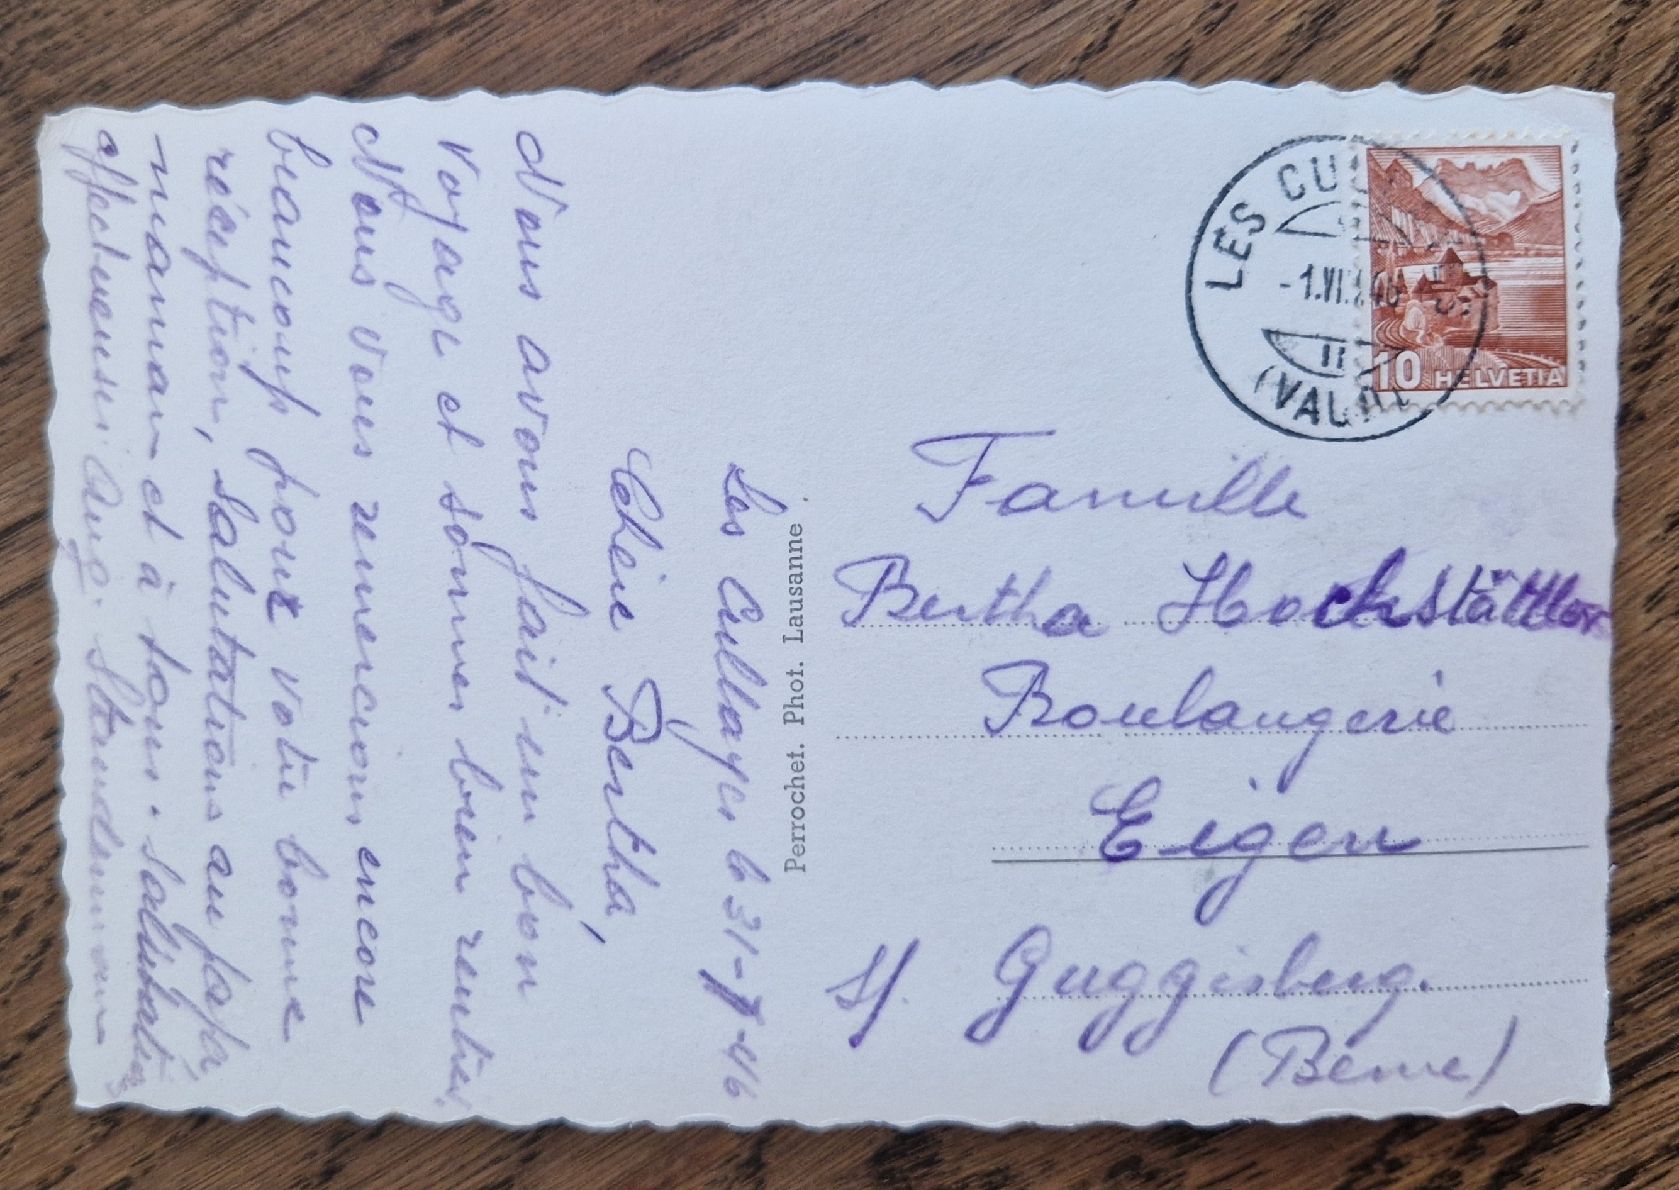 Les Cullayes le 31-7-46
Chère Bertha,
Nous avons fait un bon
voyage et sommes bien rentrés.
Nous vous remercions encore
beaucoup pour votre bonne
réception, salutations au papa
maman et à tous. Salutations
affectueuses Aug. Staudenmann
Perrochet. Phot. Lausanne
LES CU
-1.VI
(VAUD)
10 HELVETIA
Famille
Bertha Hochstättler
Boulangerie
Eigen
s/ Guggisberg.
(Berne)